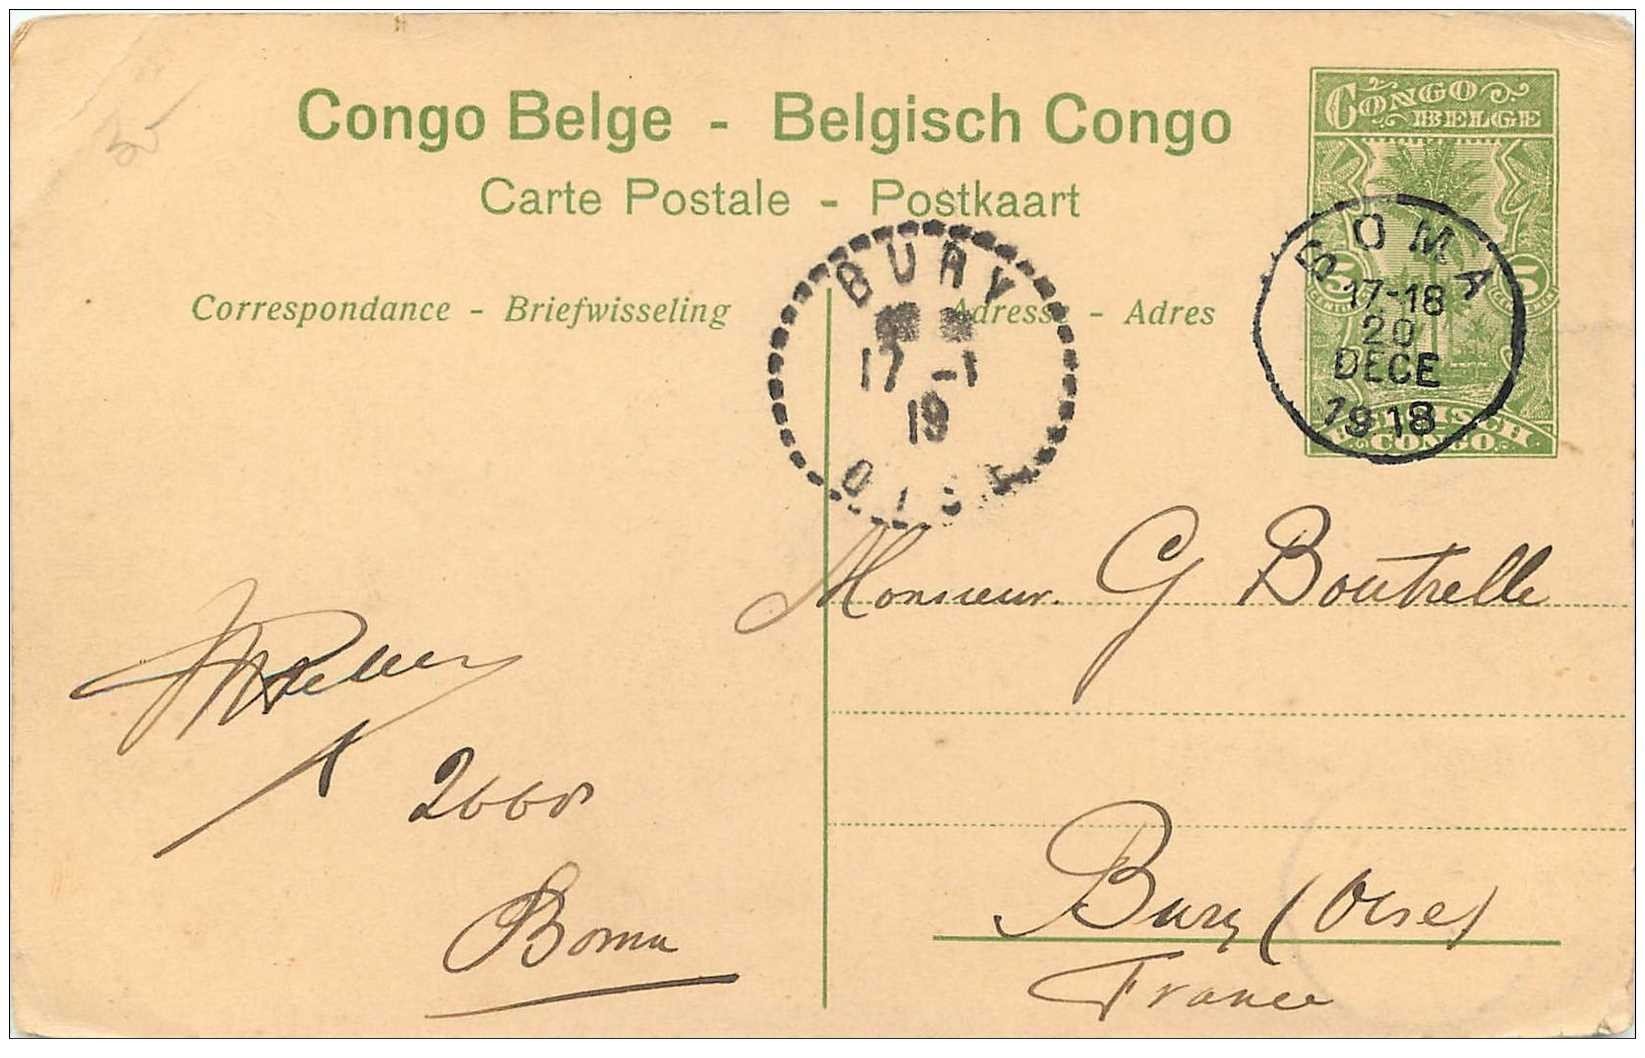 Congo Belge - Belgisch Congo
Carte Postale - Postkaart
Correspondance - Briefwisseling
Adresse - Adres
CONGO BELGE
5 5
BELGISCH CONGO
BOMA
17-18
20
DECE
1918
BURY
17 -1
19
OISE
Monsieur G Boutrelle
Bury (Oise)
France
Boma